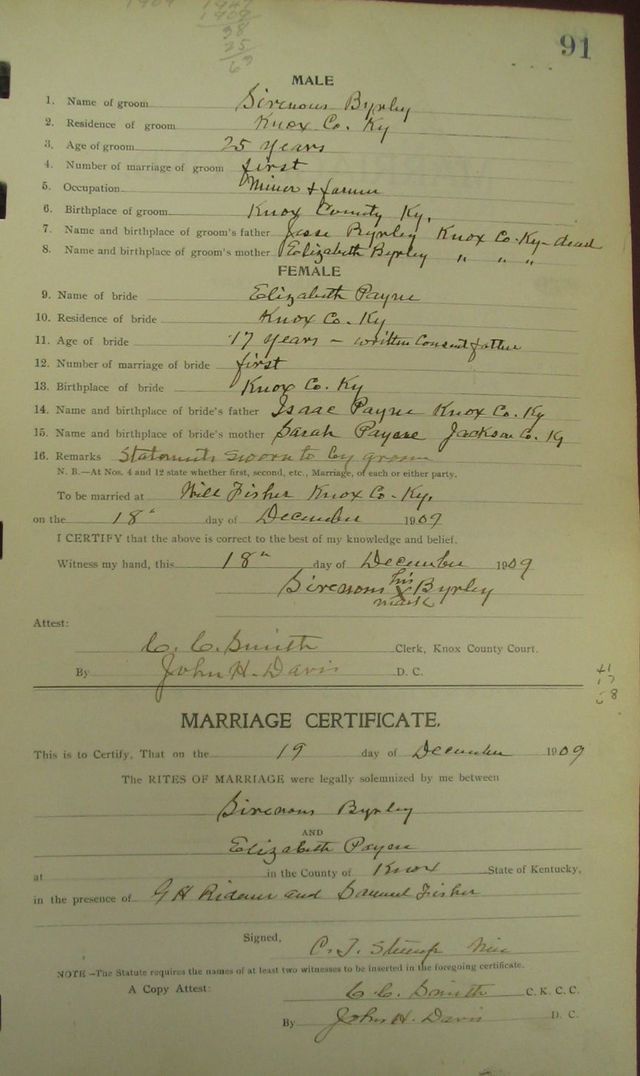 1947
1909
38
25
63
91
MALE
1. Name of groom Sirenous Byrley
2. Residence of groom Knox Co. Ky
3. Age of groom 25 years
4. Number of marriage of groom first
5. Occupation Miner & farmer
6. Birthplace of groom Knox County Ky.
7. Name and birthplace of groom's father Jesse Byrley Knox Co. Ky - dead
8. Name and birthplace of groom's mother Elizabeth Byrley " " "
FEMALE
9. Name of bride Elizabeth Payne
10. Residence of bride Knox Co. Ky
11. Age of bride 17 years - written consent father
12. Number of marriage of bride first
13. Birthplace of bride Knox Co. Ky
14. Name and birthplace of bride's father Isaac Payne Knox Co. Ky
15. Name and birthplace of bride's mother Sarah Payne Jackson Co. Ky
16. Remarks Statements sworn to by groom
N. B.—At Nos. 4 and 12 state whether first, second, etc., Marriage, of each or either party.
To be married at Will Fisher Knox Co. Ky.
on the 18" day of December 1909
I CERTIFY that the above is correct to the best of my knowledge and belief.
Witness my hand, this 18" day of December 1909
Sirenous his X mark Byrley
Attest:
C. C. Smith Clerk, Knox County Court.
By John H. Davis D. C.
41
17
58
MARRIAGE CERTIFICATE.
This is to Certify, That on the 19 day of December 1909
The RITES OF MARRIAGE were legally solemnized by me between
Sirenous Byrley
AND
Elizabeth Payne
at in the County of Knox State of Kentucky,
in the presence of G H Ridener and Samuel Fisher
Signed,
C. T. Stump Min
NOTE—The Statute requires the names of at least two witnesses to be inserted in the foregoing certificate.
A Copy Attest: C. C. Smith C. K. C. C.
By John H. Davis D. C.